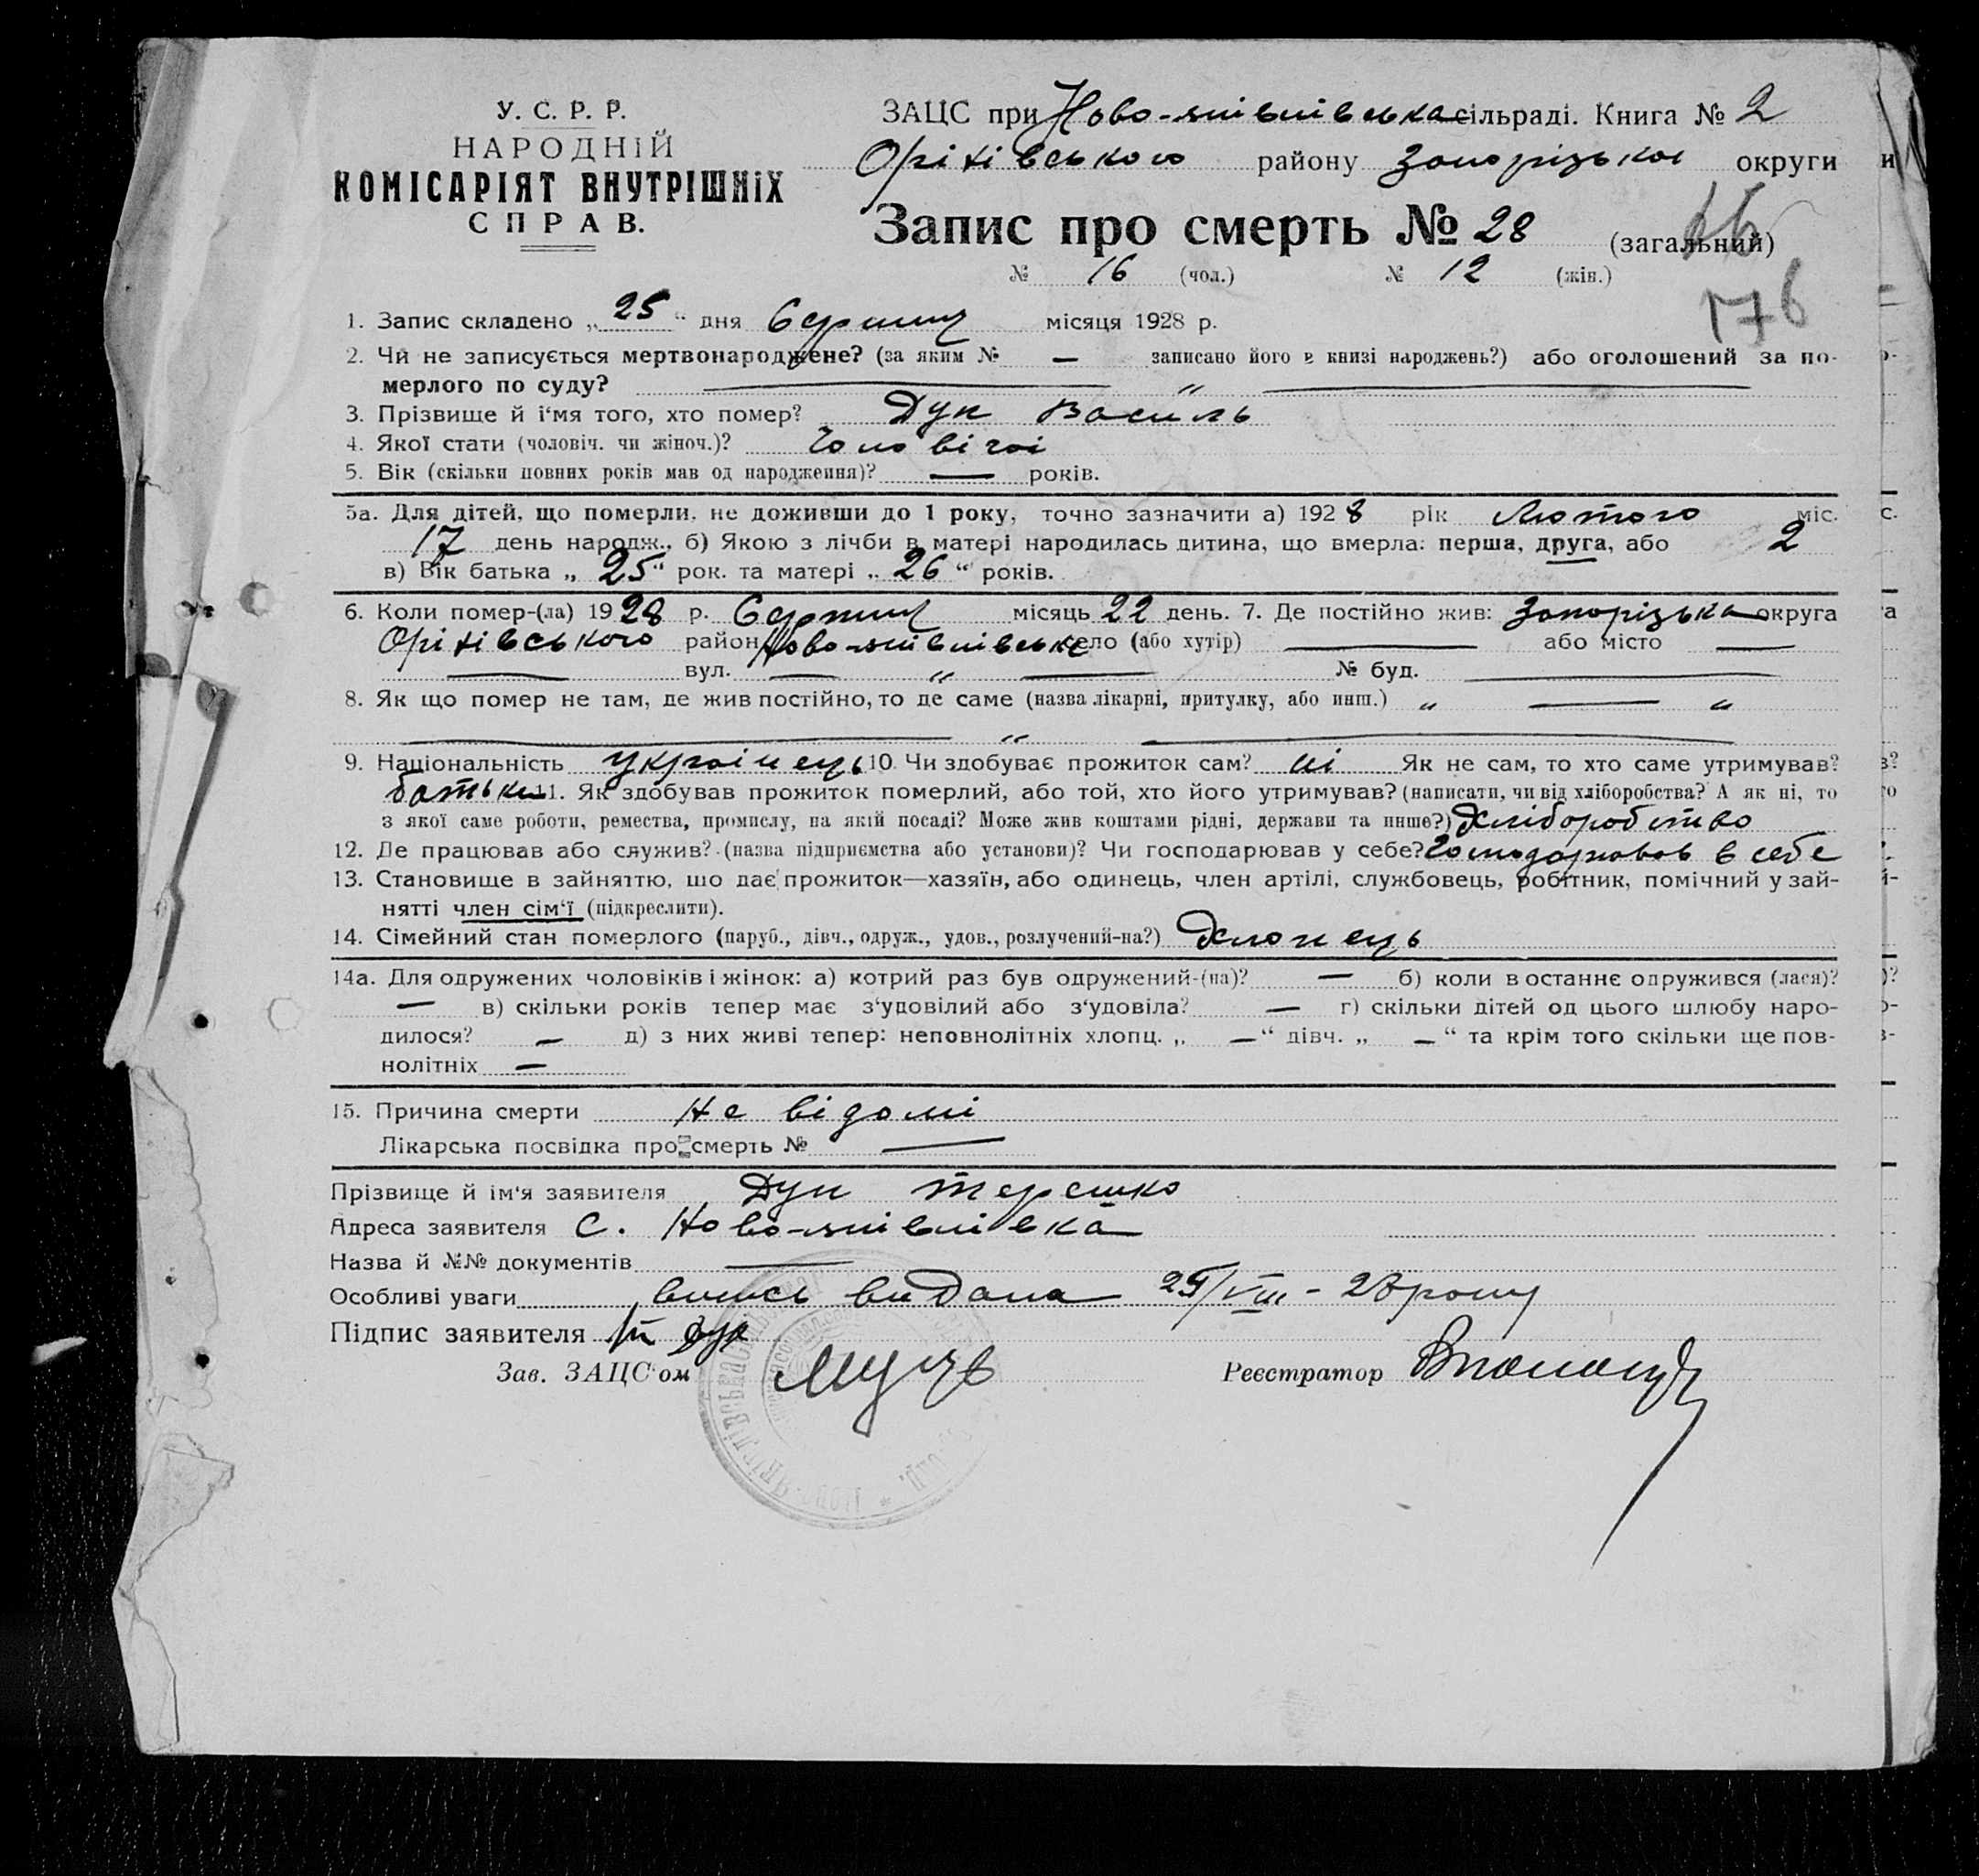 У. С. Р. Р.
НАРОДНІЙ
КОМІСАРІЯТ ВНУТРІШНІХ
СПРАВ.
ЗАЦС при Ново-янівлівська сільраді. Книга № 2
Оріхівського району Запорізької округи
Запис про смерть № 28 (загальний)
№ 16 (чол.) № 12 (жін.)
176
1. Запис складено „25“ дня Серпня місяця 1928 р.
2. Чи не записується мертвонароджене? (за яким № — записано його в книзі народжень?) або оголошений за по-
мерлого по суду? — „ —
3. Прізвище й і'мя того, хто помер? Дук Василь
4. Якої стати (чоловіч. чи жіноч.)? Чоловічої
5. Вік (скільки повних років мав од народження)? — років.
5а. Для дітей, що померли, не доживши до 1 року, точно зазначити а) 1928 рік Лютого міс.
17 день народж., б) Якою з лічби в матері народилась дитина, що вмерла: перша, друга, або 2
в) Вік батька „25“ рок. та матері „26“ років.
6. Коли помер-(ла) 1928 р. Серпня місяць 22 день. 7. Де постійно жив: Запорізька округа
Оріхівського район Ново-янівлівське село (або хутір) — або місто —
— вул. — „ — № буд. —
8. Як що помер не там, де жив постійно, то де саме (назва лікарні, притулку, або инш.) „ — „
— „ —
9. Національність українець 10 Чи здобуває прожиток сам? ні Як не сам, то хто саме утримував?
батьки 11. Як здобував прожиток померлий, або той, хто його утримував? (написати, чи від хліборобства? А як ні, то
з якої саме роботи, ремества, промислу, на якій посаді? Може жив коштами рідні, держави та инше?) Хліборобство
12. Де працював або служив? (назва підприємства або установи)? Чи господарював у себе? Господарював в себе
13. Становище в зайняттю, що дає прожиток—хазяїн, або одинець, член артілі, службовець, робітник, помічний у зай-
нятті член сім'ї (підкреслити).
14. Сімейний стан померлого (паруб., дівч., одруж., удов., розлучений-на?) Хлопець
14а. Для одружених чоловіків і жінок: а) котрий раз був одружений-(на)? — б) коли востаннє одружився (лася)?
— в) скільки років тепер має з'удовілий або з'удовіла? — г) скільки дітей од цього шлюбу наро-
дилося? — д) з них живі тепер: неповнолітніх хлопц. „ —“ дівч. „ —“ та крім того скільки ще пов-
нолітніх —
15. Причина смерти Не відомі
Лікарська посвідка про смерть № —
Прізвище й ім'я заявителя Дук Терешко
Адреса заявителя С. Ново-янівлівка
Назва й №№ документів —
Особливі уваги випись видана 25/VIII - 28 року
Підпис заявителя Дук
Зав. ЗАЦС'ом Реєстратор